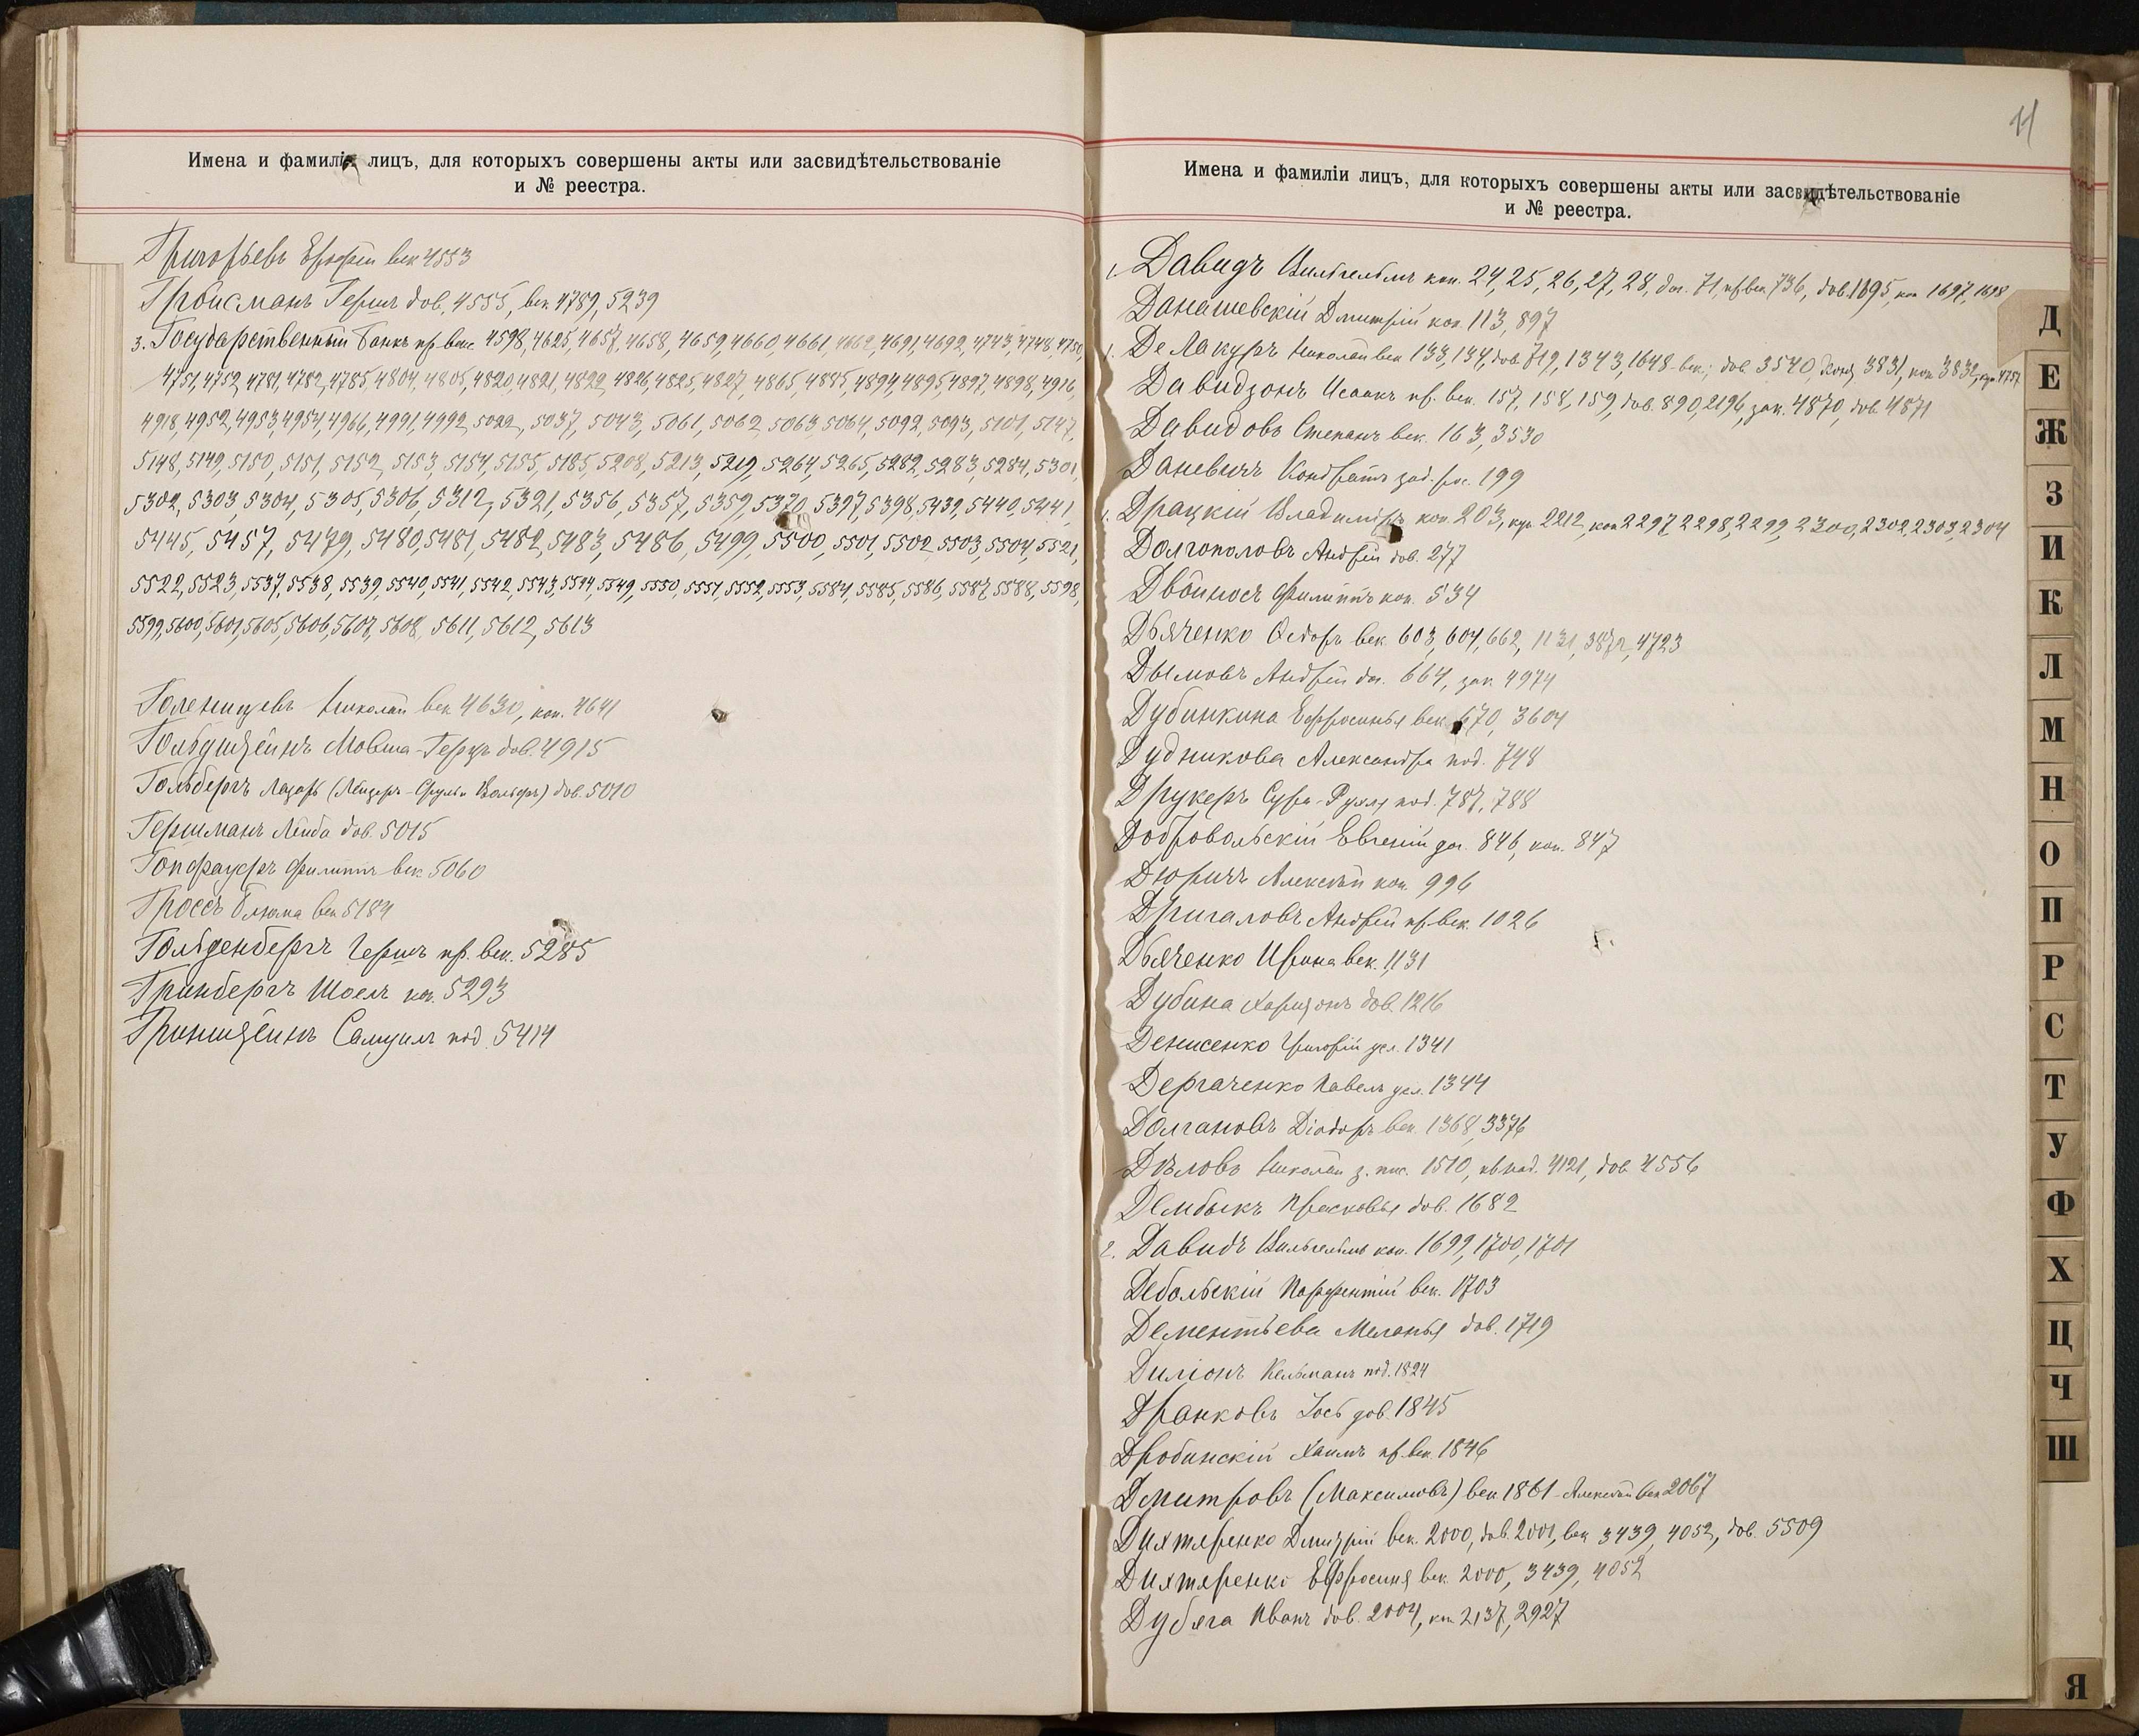 Имена и фамиліи лицъ, для которыхъ совершены акты или засвидѣтельствованіе
и № реестра.
Григорьевъ Ерофей век 4553
Гройсманъ Гершъ дов. 4555, век. 4789, 5239
3. Государственный Банкъ пр. век. 4598, 4625, 4657, 4658, 4659, 4660, 4661, 4662, 4691, 4692, 4743, 4748, 4750,
4751, 4752, 4781, 4782, 4785, 4804, 4805, 4820, 4821, 4822, 4826, 4825, 4827, 4865, 4885, 4894, 4895, 4897, 4898, 4916,
4918, 4952, 4953, 4954, 4966, 4991, 4992, 5022, 5037, 5043, 5061, 5062, 5063, 5064, 5092, 5093, 5101, 5147,
5148, 5149, 5150, 5151, 5152, 5153, 5154, 5155, 5185, 5208, 5213, 5219, 5264, 5265, 5282, 5283, 5284, 5301,
5302, 5303, 5304, 5305, 5306, 5312, 5321, 5356, 5357, 5359, 5370, 5397, 5398, 5439, 5440, 5441,
5445, 5457, 5479, 5480, 5481, 5482, 5483, 5486, 5499, 5500, 5501, 5502, 5503, 5504, 5521,
5522, 5523, 5537, 5538, 5539, 5540, 5541, 5542, 5543, 5544, 5549, 5550, 5551, 5552, 5553, 5584, 5585, 5586, 5587, 5588, 5598,
5599, 5600, 5601, 5605, 5606, 5607, 5608, 5611, 5612, 5613
Голенищевъ Николай век 4630, коп. 4641
Гольдштейнъ Мовша-Герцъ дов. 4915
Гольбергъ Лазарь дов. 5010
Гершманъ Лейба дов. 5015
Гопфауфъ Филиппъ век. 5060
Гроссъ Блюма век 5184
Гольденбергъ Гершъ пр. век. 5285
Гринбергъ Шоель коп. 5293
Гринштейнъ Самуилъ под. 5414
11
Имена и фамиліи лицъ, для которыхъ совершены акты или засвидѣтельствованіе
и № реестра.
1. Давидъ Вильгельмъ коп. 24, 25, 26, 27, 28, дог. 71, пр. век 736, дов. 1695, коп 1697, 1698
Данашевскій Дмитрій коп. 113, 897
1. Де Лакуръ Николай век 133, 134, дов. 719, 1343, 1648 век.; дов. 3540, 3831, коп. 3832, 4757
Давидзонъ Исаакъ пр. век. 157, 158, 159, дов. 890, 2196, зак. 4870, дов. 4871
Давидовъ Степанъ век. 163, 3530
Даневичъ Кондратъ зад. рос. 199
1. Драцкій Владиміръ коп. 203, куп. 2212, коп 2297, 2298, 2299, 2300, 2302, 2303, 2304
Долгополовъ Андрей дов. 277
Двойносъ Филиппъ коп. 534
Дьяченко Ѳедоръ век. 603, 604, 662, 1131, 3872, 4723
Дымовъ Андрей дог. 664, зак. 4974
Дубинкина Ефросинья век. 670, 3604
Дудникова Александра под. 748
Друкеръ Сура-Рухля под. 787, 788
Добровольскій Евгеній дог. 846, коп. 847
Дюричъ Алексѣй коп. 996
Дригаловъ Андрей пр. век. 1026
Дьяченко Ирина век. 1131
Дубина Харитонъ дов. 1216
Денисенко Григорій усл. 1341
Дергаченко Павелъ усл. 1344
Долгановъ Діодоръ век. 1368, 3376
Дѣловъ Николай з. пис. 1510, 4121, дов. 4556
Дембыкъ Прасковья дов. 1682
2. Давидъ Вильгельмъ коп. 1699, 1700, 1701
Дебольскій Парфентій век. 1703
Дементьева Меланья дов. 1719
Диліонъ Кельманъ под. 1824
Дранковъ Іось дов. 1845
Дробинскій Хаимъ пр. век. 1846
Дмитровъ (Максимовъ) век 1861 - Алексѣй век 2067
Дихтяренко Дмитрій век. 2000, дов. 2001, век 3439, 4052, дов. 5509
Дихтяренко Ефросинія век. 2000, 3439, 4052
Дубяга Иванъ дов. 2004, коп 2137, 2927
Д
Е
Ж
З
И
К
Л
М
Н
О
П
Р
С
Т
У
Ф
Х
Ц
Ч
Ш
Я